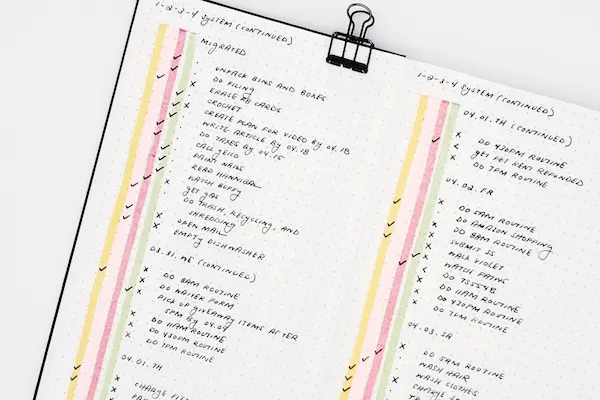 1-2-3-4 SYSTEM (CONTINUED)
MIGRATED
UNPACK BINS AND BOXES
DO FILING
ERASE CARDS
CROCHET
CREATE PLAN FOR VIDEO BY 04.18
WRITE ARTICLE BY 04.18
DO TAXES BY 04.15
CALL GEICO
PAINT NAILS
READ HANNIBAL
WATCH BUFFY
GET GAS
DO TRASH, RECYCLING, AND
SHREDDING
OPEN MAIL
EMPTY DISHWASHER
03.31.WE (CONTINUED)
DO 8AM ROUTINE
DO WAIVER FORM
PICK UP GIVEAWAY ITEMS AFTER
5PM BY 04.04
DO 11AM ROUTINE
DO 430PM ROUTINE
DO 7PM ROUTINE
04.01.TH
CHARGE
1-2-3-4 SYSTEM (CONTINUED)
04.01.TH (CONTINUED)
DO 430PM ROUTINE
GET KENT REFUNDED
DO 7PM ROUTINE
04.02.FR
DO 5AM ROUTINE
DO AMAZON SHOPPING
DO 8AM ROUTINE
SUBMIT SS
WALK VIOLET
WATCH
DO
DO 11AM ROUTINE
DO 430PM ROUTINE
DO 7PM ROUTINE
04.03.SA
DO 5AM ROUTINE
WASH HAIR
WASH CLOTHES
CHARGE